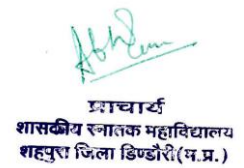 प्राचार्य
शासकीय स्नातक महाविद्यालय
शहपुरा जिला डिण्डौरी(म.प्र.)